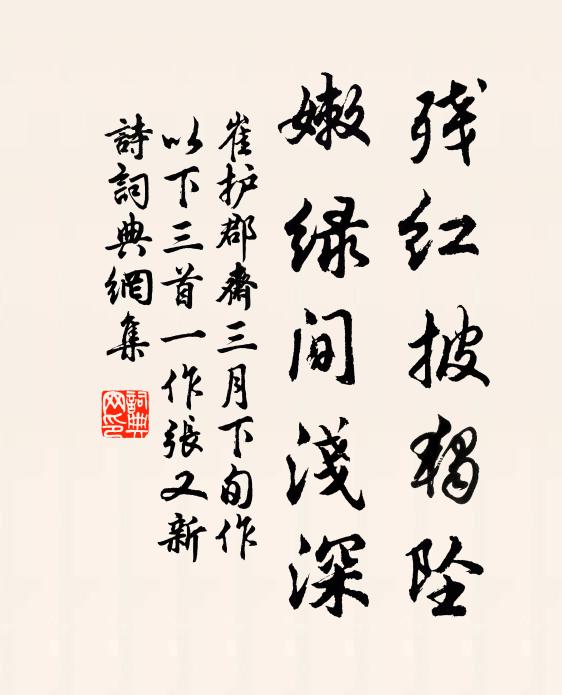 残红披独坠
嫩绿间浅深
崔护郡斋三月下旬作
以下三首一作張又新
詩詞典網集
詞典网印